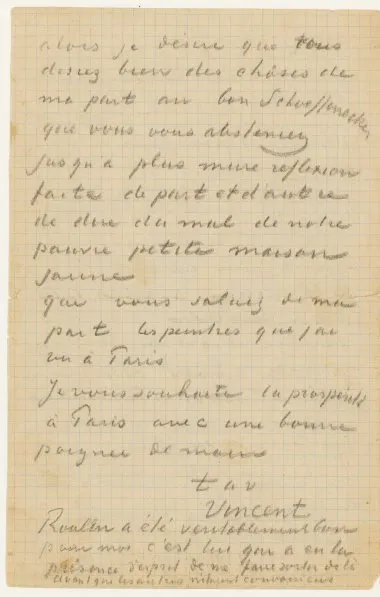 alors je désire que tous
disiez bien des choses de
ma part au bon Schuffenecker
que vous vous absteniez
jusqu'a plus mure reflexion
faite de part et d'autre
de dire du mal de notre
pauvre petite maison
jaune
que vous saluiez de ma
part les peintres que j'ai
vu à Paris
Je vous souhaite la prospérité
à Paris avec une bonne
poignee de main
t à v
Vincent
Roulin a été veritablement bon
pour moi c'est lui qui a eu la
présence d'esprit de me faire sortir de là
avant que les autres n'etaient convaincus